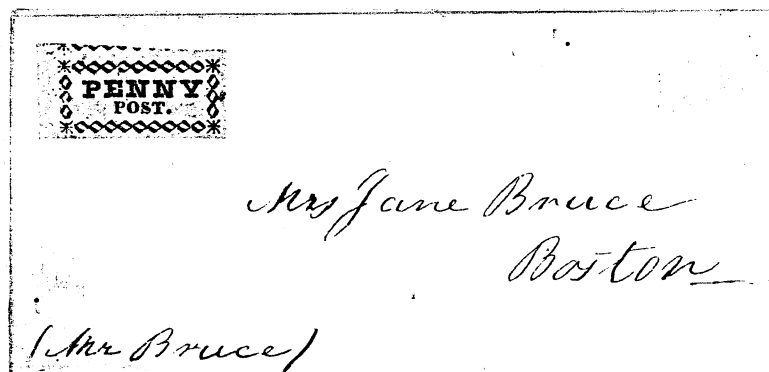 PENNY
POST.
Mrs Jane Bruce
Boston
(Mr Bruce)